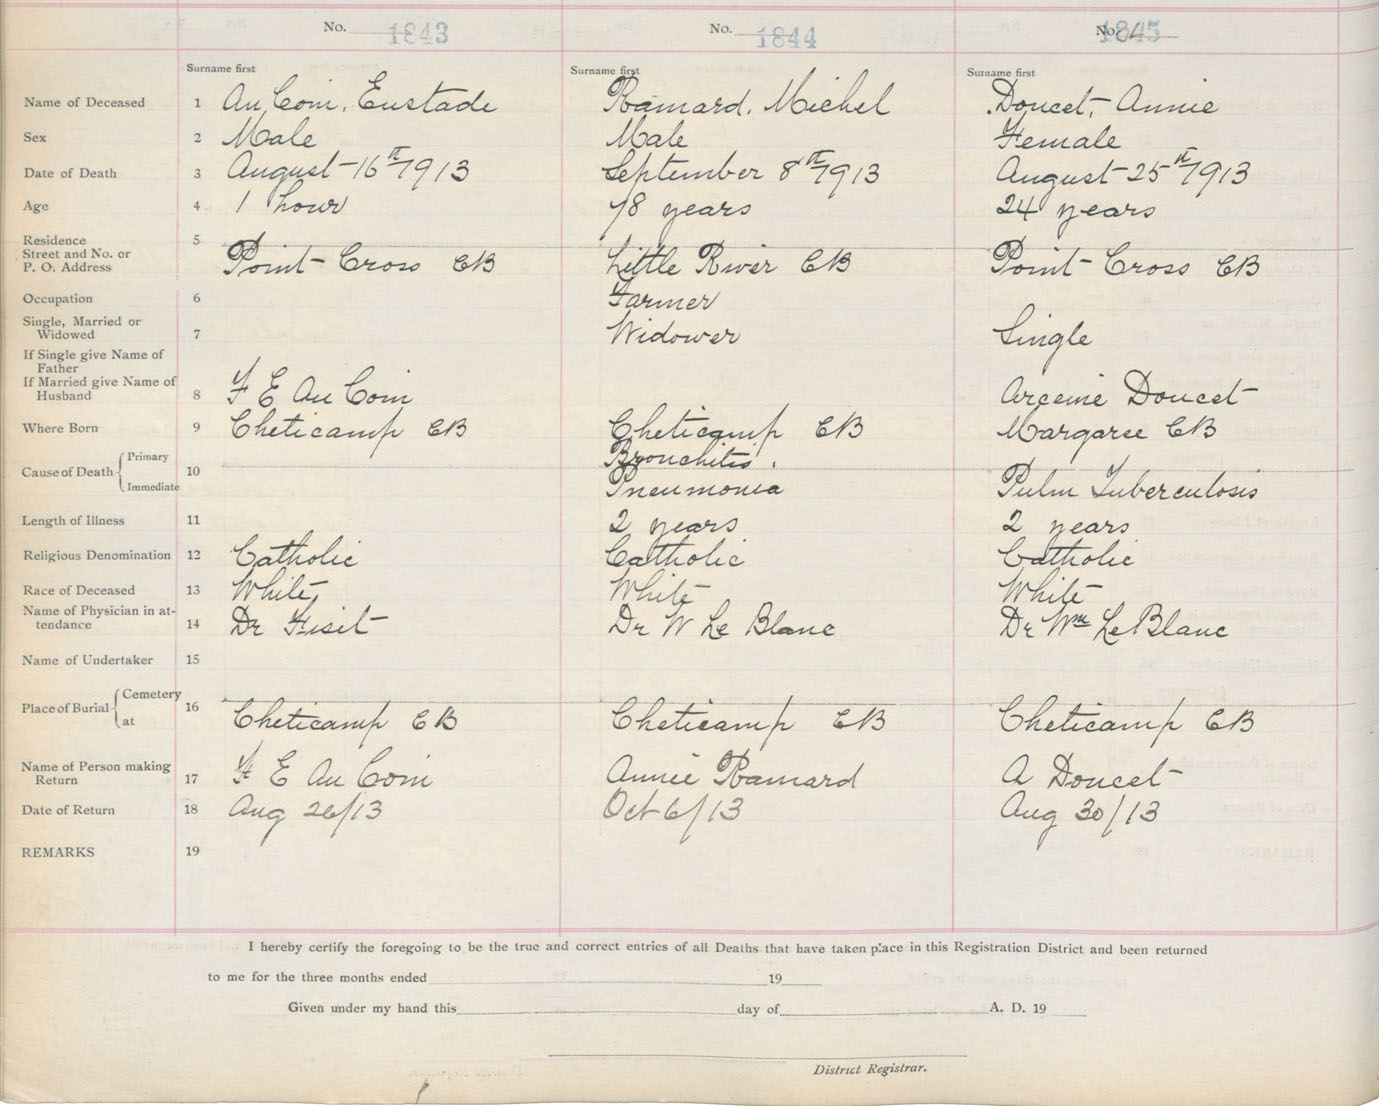 No. 1843 No. 1844 No. 1845
Surname first Surname first Surname first
Name of Deceased 1 Au Coin, Eustade Ramard, Michel Doucet, Annie
Sex 2 Male Male Female
Date of Death 3 August 16th 1913 September 8th 1913 August 25th 1913
Age 4 1 hour 78 years 24 years
Residence 5
Street and No. or
P. O. Address Point Cross CB Little River CB Point Cross CB
Occupation 6 Farmer
Single, Married or
Widowed 7 Widower Single
If Single give Name of
Father
If Married give Name of
Husband 8 F E Au Coin Arceine Doucet
Where Born 9 Cheticamp CB Cheticamp CB Margaree CB
Cause of Death Primary 10 Bronchitis.
Immediate Pneumonia Pulm Tuberculosis
Length of Illness 11 2 years 2 years
Religious Denomination 12 Catholic Catholic Catholic
Race of Deceased 13 White, White White
Name of Physician in at-
tendance 14 Dr Fiset Dr W Le Blanc Dr Wm LeBlanc
Name of Undertaker 15
Place of Burial Cemetery 16
at Cheticamp CB Cheticamp CB Cheticamp CB
Name of Person making
Return 17 F E Au Coin Annie Ramard A Doucet
Date of Return 18 Aug 26/13 Oct 6/13 Aug 30/13
REMARKS 19
I hereby certify the foregoing to be the true and correct entries of all Deaths that have taken place in this Registration District and been returned
to me for the three months ended 19
Given under my hand this day of A. D. 19
District Registrar.